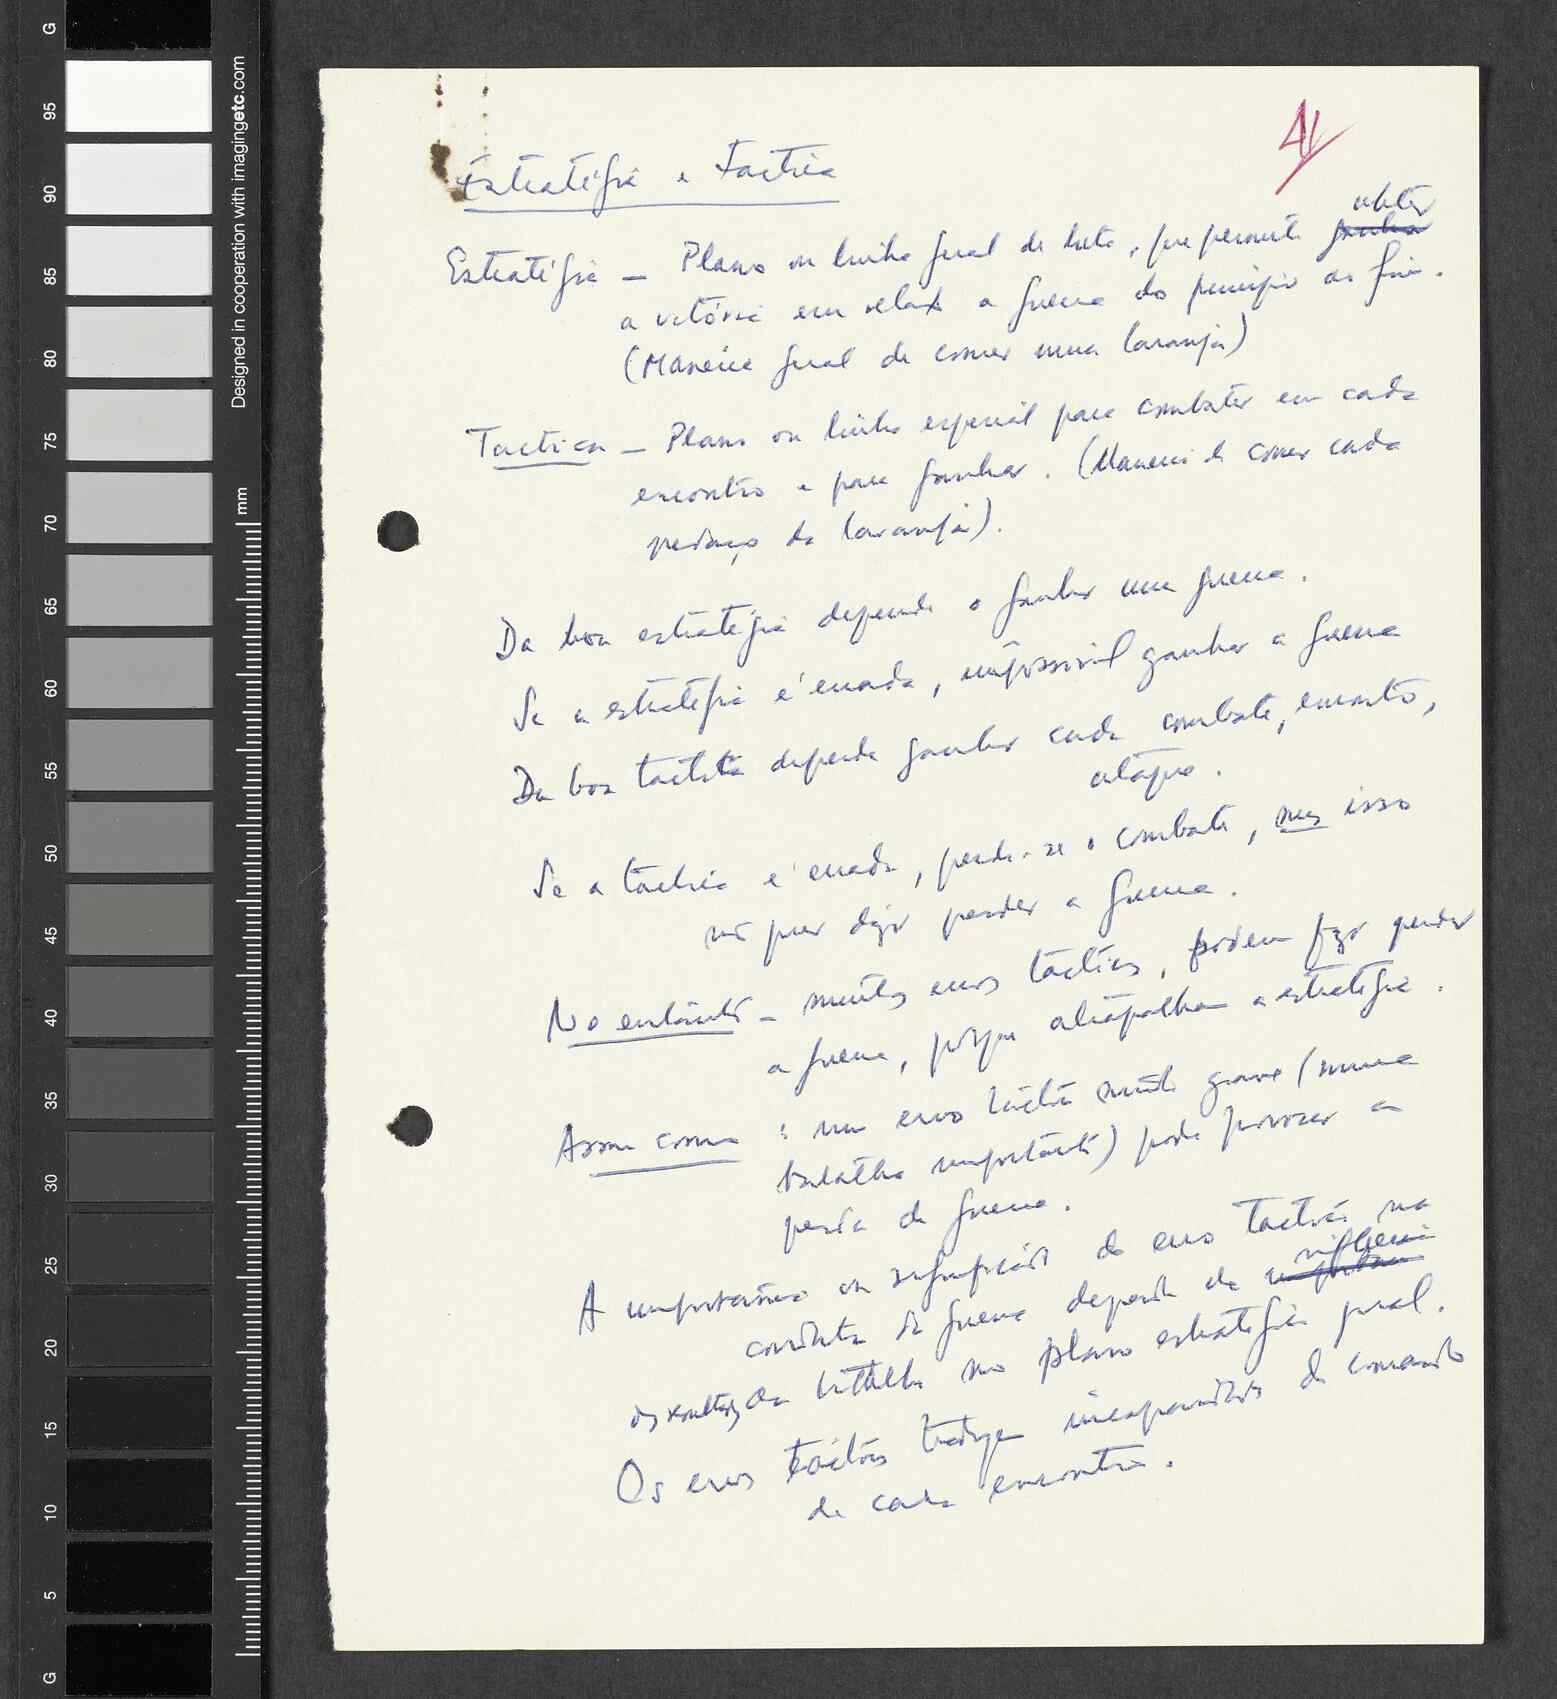 4
Estratégia e Táctica
obter
Estratégia — Plano ou linha geral de luta, que permite ganhar
a vitória em relação a guerra do princípio ao fim.
(Maneira geral de comer uma laranja)
Tactica — Plano ou linha especial para combater em cada
encontro e para ganhar. (Maneira de comer cada
pedaço da laranja).
Da boa estratégia depende o ganhar uma guerra.
Se a estratégia é errada, impossível ganhar a guerra
Da boa táctica depende ganhar cada combate, encontro,
ataque.
Se a táctica é errada, perde-se o combate, mas isso
não quer dizer perder a guerra.
No entanto — muitos erros tácticos, podem fazer perder
a guerra, porque atrapalham a estratégia.
Assim como: um erro táctico muito grave (numa
batalha importante) pode provocar a
perda da guerra.
A importância ou significado do erro táctico na
influência
conduta da guerra depende da
dos resultados da batalha no plano estratégico geral.
Os erros tácticos traduzem incapacidade do comando
de cada encontro.
Designed in cooperation with imagingetc.com
mm
G
95
90
85
80
75
70
65
60
55
50
45
40
35
30
25
20
15
10
5
G